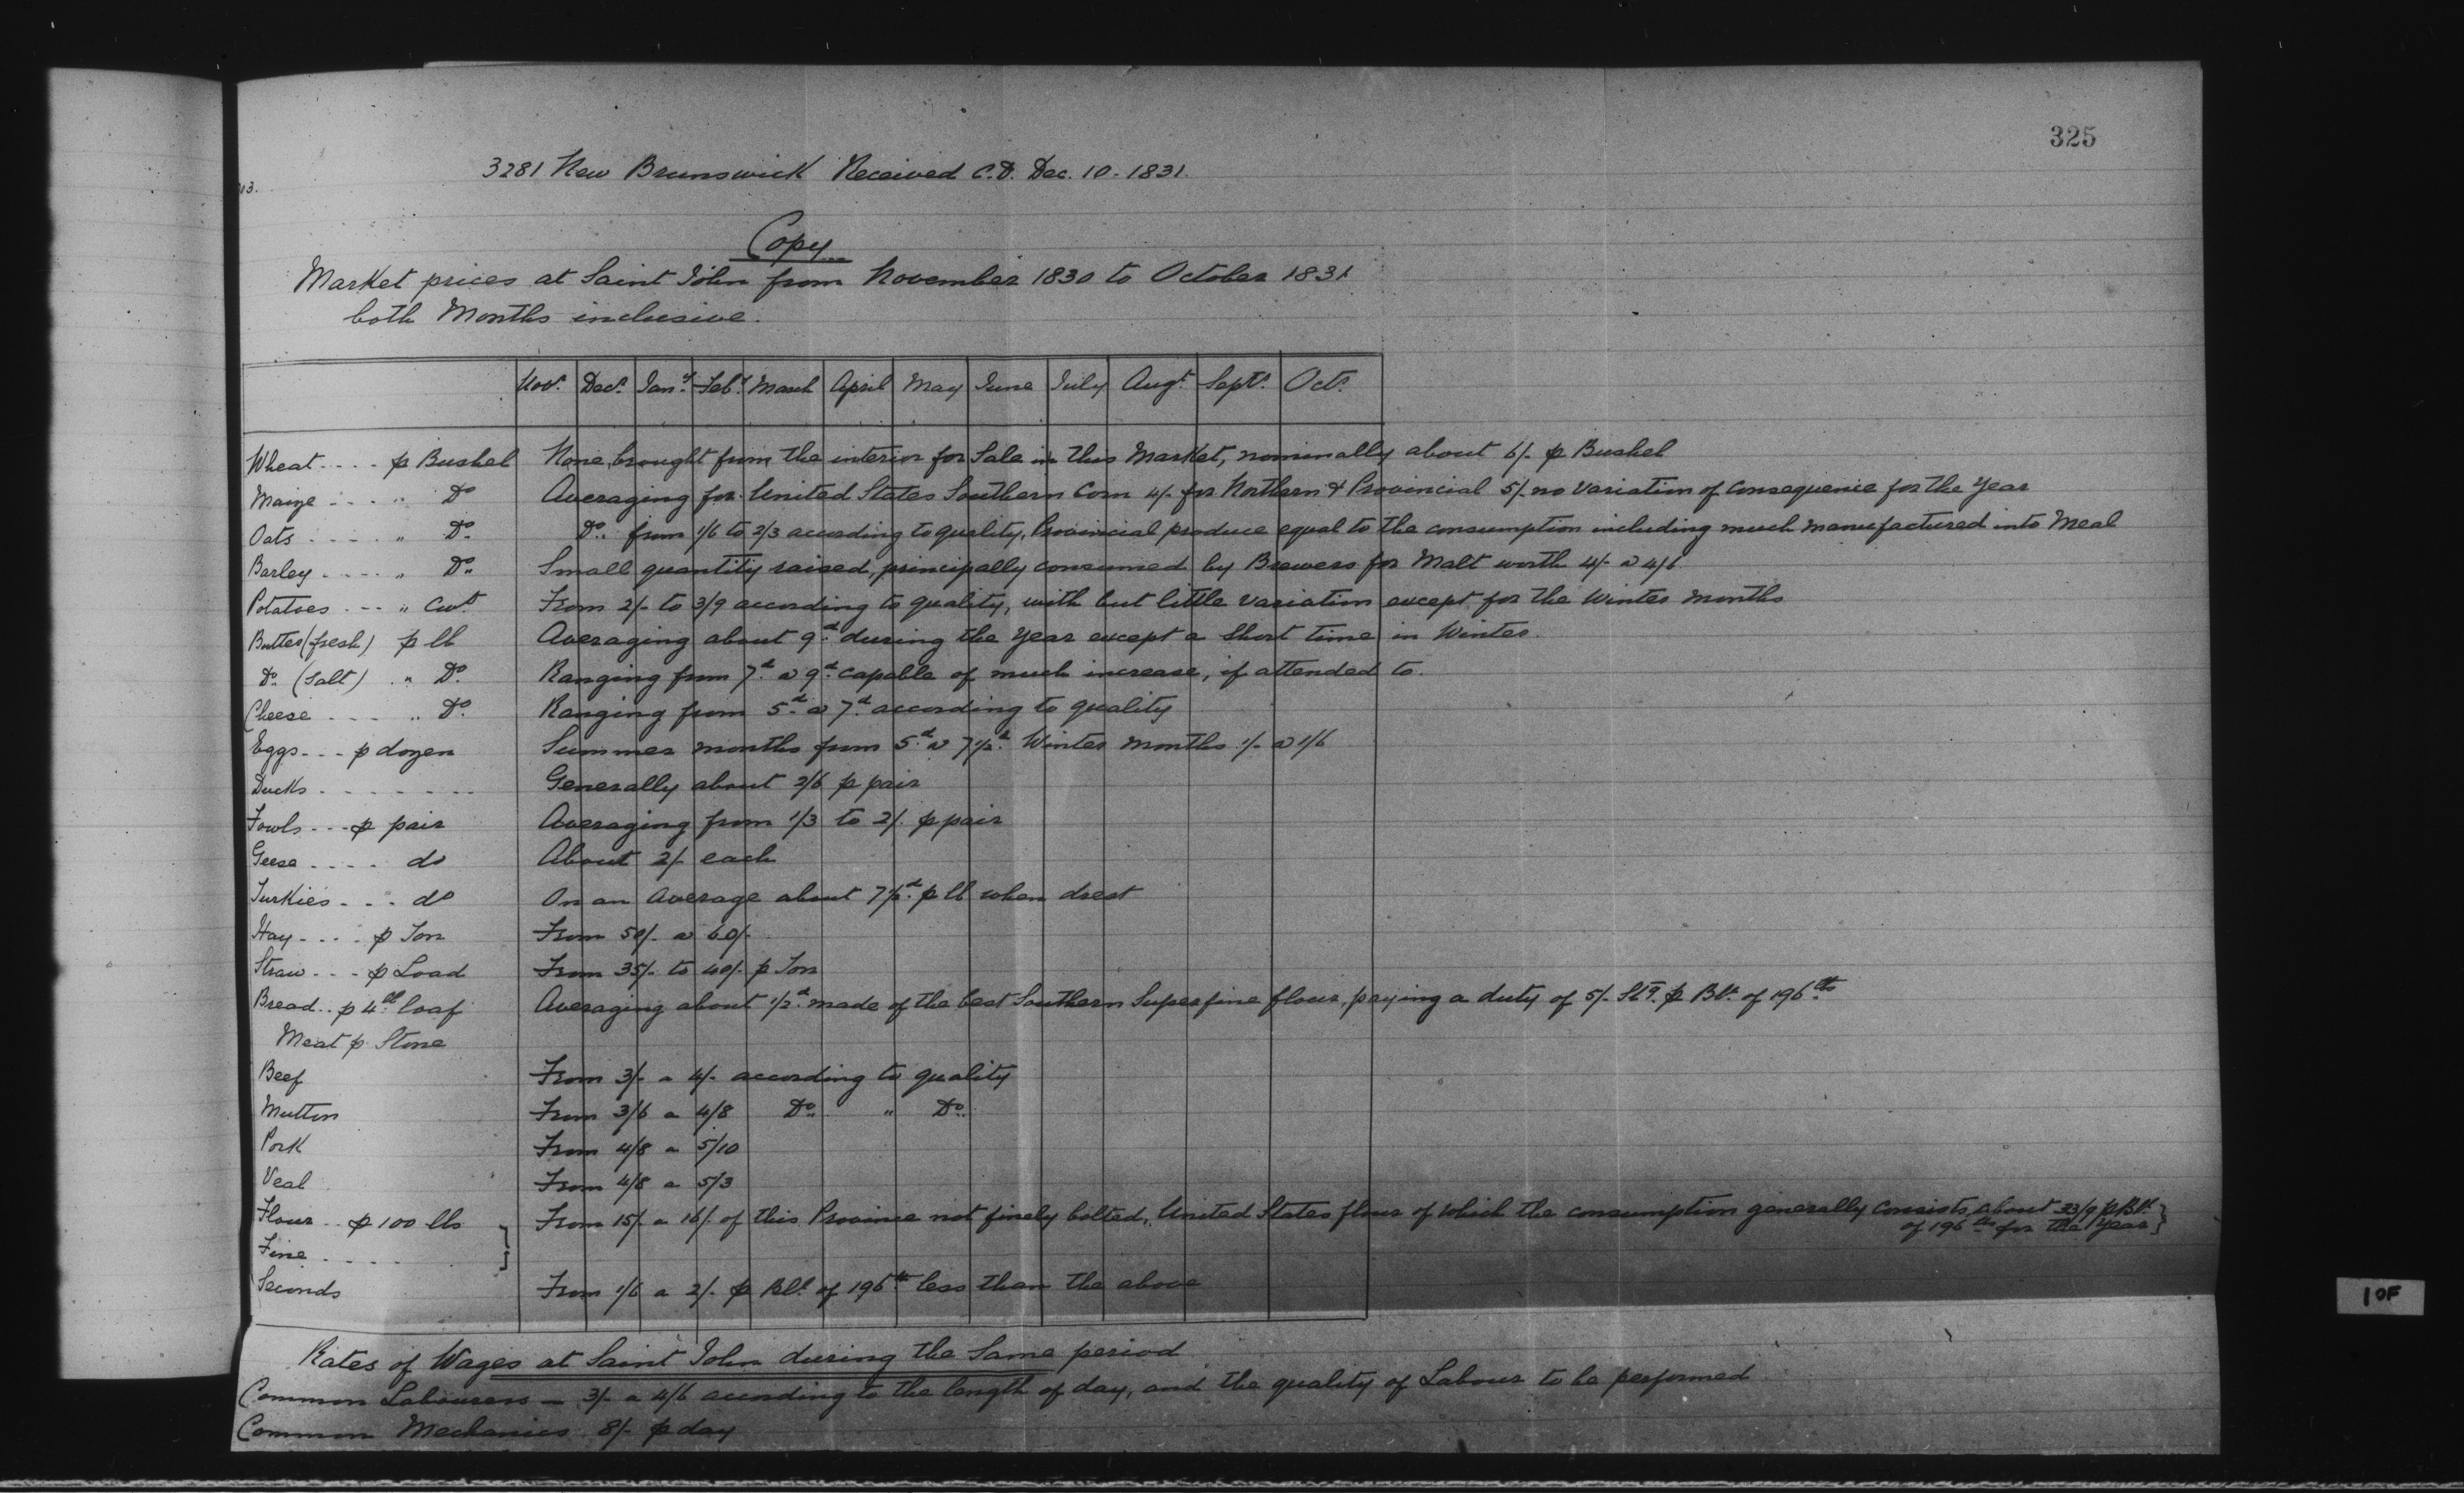 325
3281 New Brunswick Received C.D. Dec. 10. 1831.
13.
Copy
Market prices at Saint John from November 1830 to October 1831
both Months inclusive.
Novr. Decr. Jany. Feby. March April May June July Augt. Septr. Octr.
Wheat .... p Bushel None brought from the interior for Sale in this Market, nominally about 6/- p Bushel
Maize .... " Do Averaging for United States Southern Corn 4/- for Northern & Provincial 5/- no variation of consequence for the Year
Oats ..... " Do. Do. from 1/6 to 2/3 according to quality, Provincial produce equal to the consumption including much manufactured into Meal
Barley .... " Do. Small quantity raised, principally consumed by Brewers for Malt worth 4/- a 4/6
Potatoes ... " Cwt. From 2/- to 3/9 according to quality, with but little variation except for the Winter months
Butter (fresh) p lb Averaging about 9d. during the Year except a short time in Winter.
Do. (Salt) . " Do. Ranging from 7d. a 9d. capable of much increase, if attended to.
Cheese .... " Do. Ranging from 5d. a 7d. according to quality
Eggs ... p dozen Summer months from 5d. a 7 1/2d. Winter months 1/- a 1/6
Ducks ........ Generally about 2/6 p pair
Fowls ... p pair Averaging from 1/3 to 2/. p pair
Geese .... do About 2/- each
Turkies ... do On an Average about 7 1/2d. p lb when drest
Hay .... p Ton From 50/- a 60/-
Straw ... p Load From 35/- to 40/- p Ton
Bread .. p 4lb. loaf Averaging about 1/2d. made of the best Southern Superfine flour, paying a duty of 5/- Stg. p Bl. of 196 lbs
Meat p Stone
Beef From 3/- a 4/- according to quality
Mutton From 3/6 a 4/8 Do. " Do.
Pork From 4/8 a 5/10
Veal From 4/8 a 5/3
Flour .. p 100 lbs From 15/- a 16/- of this Province not finely bolted, United States flour of which the consumption generally consists about 33/9 p Bl.
of 196 lbs for the Year }
Fine ..... }
Seconds From 1/6 a 2/- p Bl. of 196 lb less than the above
Rates of Wages at Saint John during the Same period
Common Labourers — 3/- a 4/6 according to the length of day, and the quality of Labour to be performed
Common Mechanics 8/- p day
1 OF